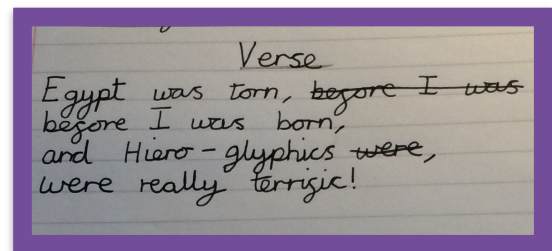 Verse
Egypt was torn, before I was
before I was born,
and Hiero-glyphics were,
were really terrific!